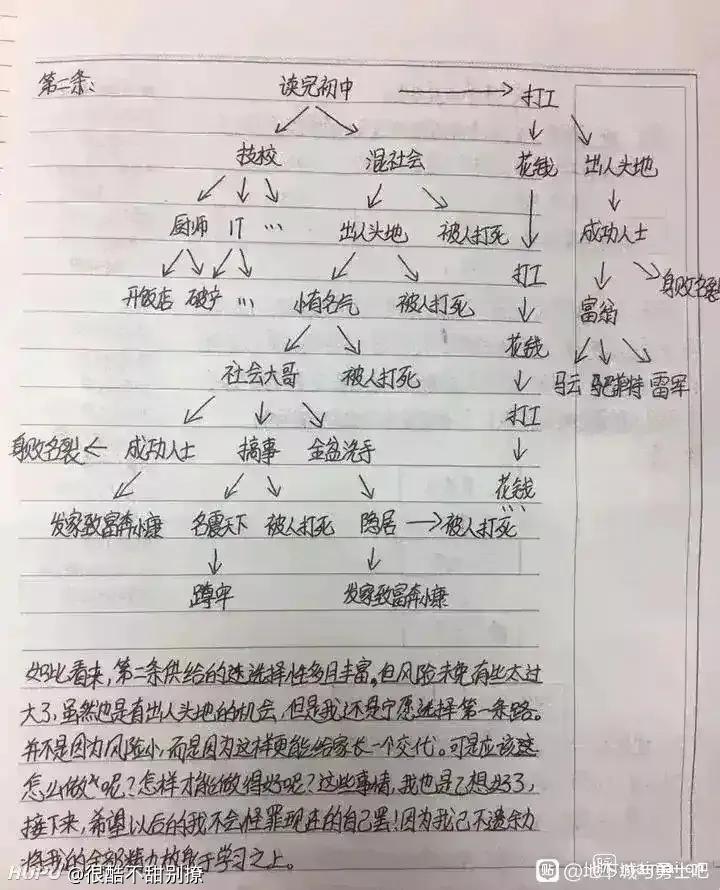 第二条：
读完初中 打工
技校 混社会 花钱 出人头地
厨师 IT … 出人头地 被人打死 成功人士
开饭店 破产 … 小有名气 被人打死 打工 富翁 身败名裂
社会大哥 被人打死 花钱 马云 巴菲特 雷军
身败名裂 成功人士 搞事 金盆洗手 打工
发家致富奔小康 名震天下 被人打死 隐居 被人打死 花钱…
蹲牢 发家致富奔小康
如此看来，第二条供给的选择性多且丰富。但风险未免有些太过
大了，虽然也是有出人头地的机会，但是我还是宁愿选择第一条路。
并不是因为风险小，而是因为这样更能给家长一个交代。可是应该
怎么做呢？怎样才能做得好呢？这些事情，我也是已想好了，
接下来，希望以后的我不会怪罪现在的自己罢！因为我已不遗余力
将我的全部精力放身于学习之上。
HUPU @很酷不甜别撩
@地下城与勇士吧